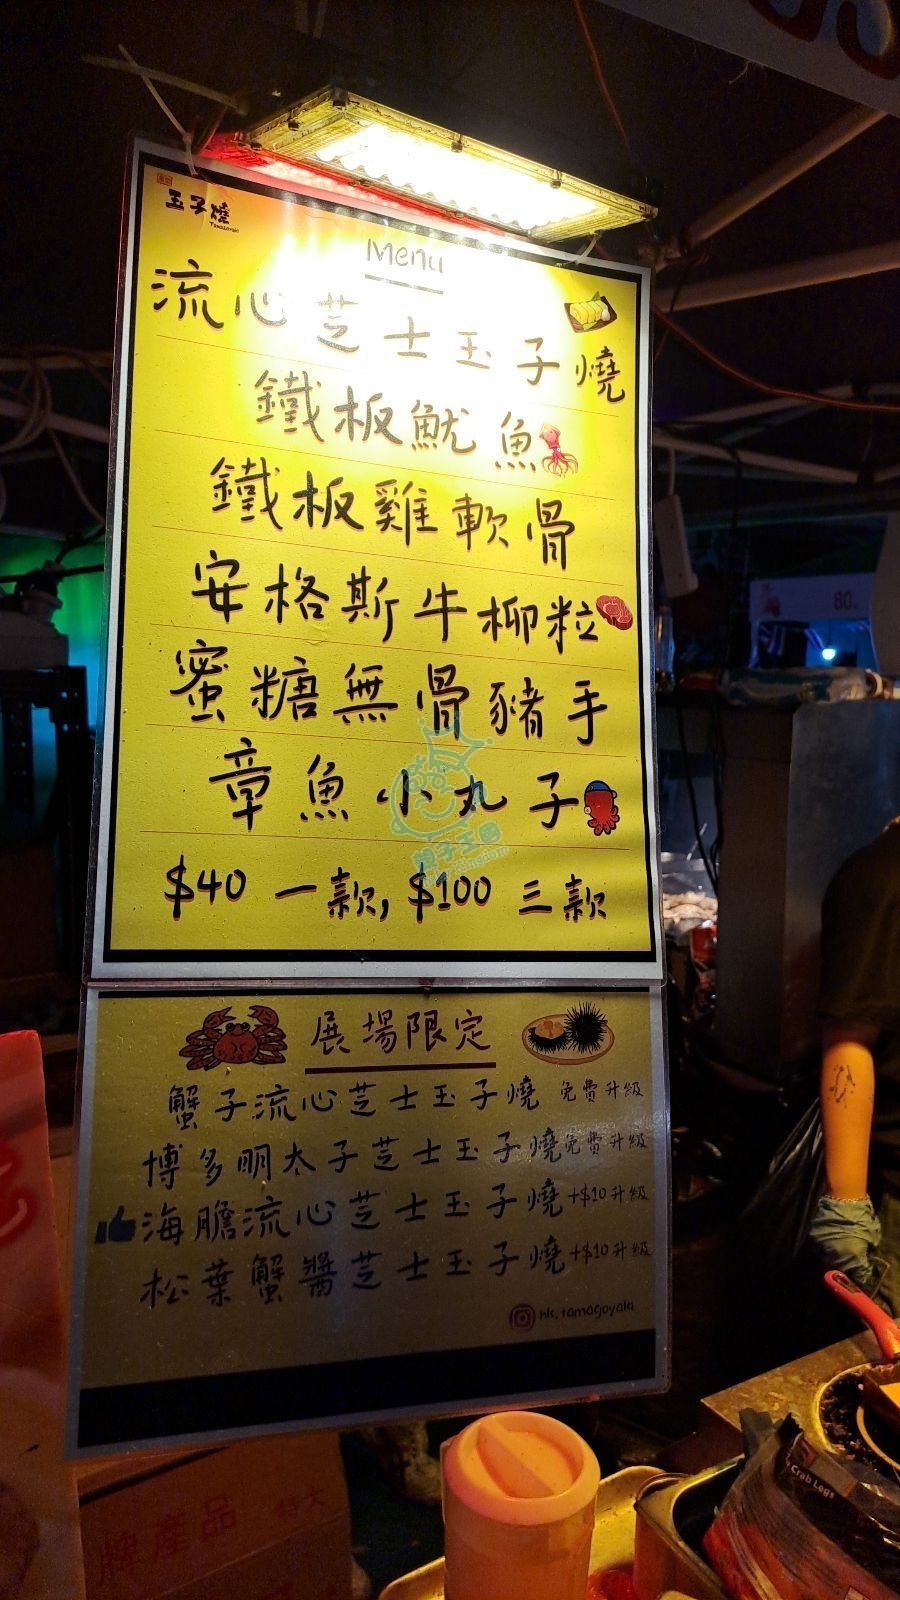 玉子燒
Tamagoyaki
Menu
流心芝士玉子燒
鐵板魷魚
鐵板雞軟骨
安格斯牛柳粒
蜜糖無骨豬手
章魚小丸子
$40 一款, $100 三款
親子王國
Kingdom
展場限定
蟹子流心芝士玉子燒 免費升級
博多明太子芝士玉子燒 免費升級
海膽流心芝士玉子燒 +$10升級
松葉蟹醬芝士玉子燒 +$10升級
hk.tamagoyaki
80
Crab Legs
牌產品 特大